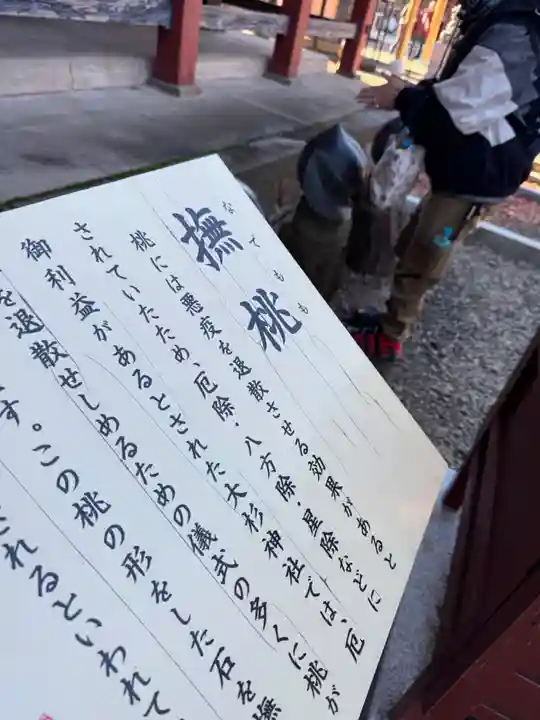 なでもも
撫桃
桃には悪疫を退散させる効果があると
されていたため、厄除・八方除・星除などに
御利益があるとされた大杉神社では、厄
を退散せしめるための儀式の多くに桃が
す。この桃の形をした石を撫
されるといわれて